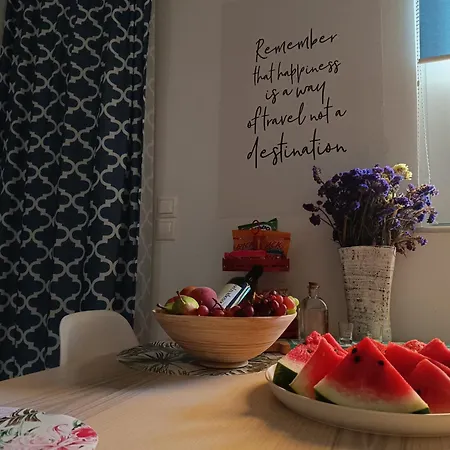 Remember
that happiness
is a way
of travel not a
destination